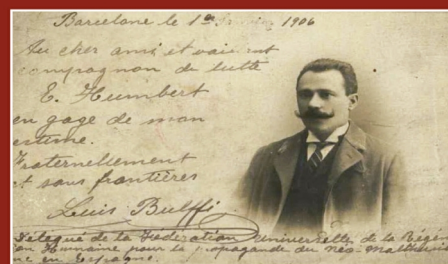 Barcelone le 1er 1906
Au cher ami et vaillant
compagnon de lutte
E. Humbert
en gage de mon
estime.
Fraternellement
et sans frontières
Luis Bulffi
Délégué de la Fédération Universelle de la Régén
on Humaine pour la propagande du Néo-Malthusia
me en Espagne.